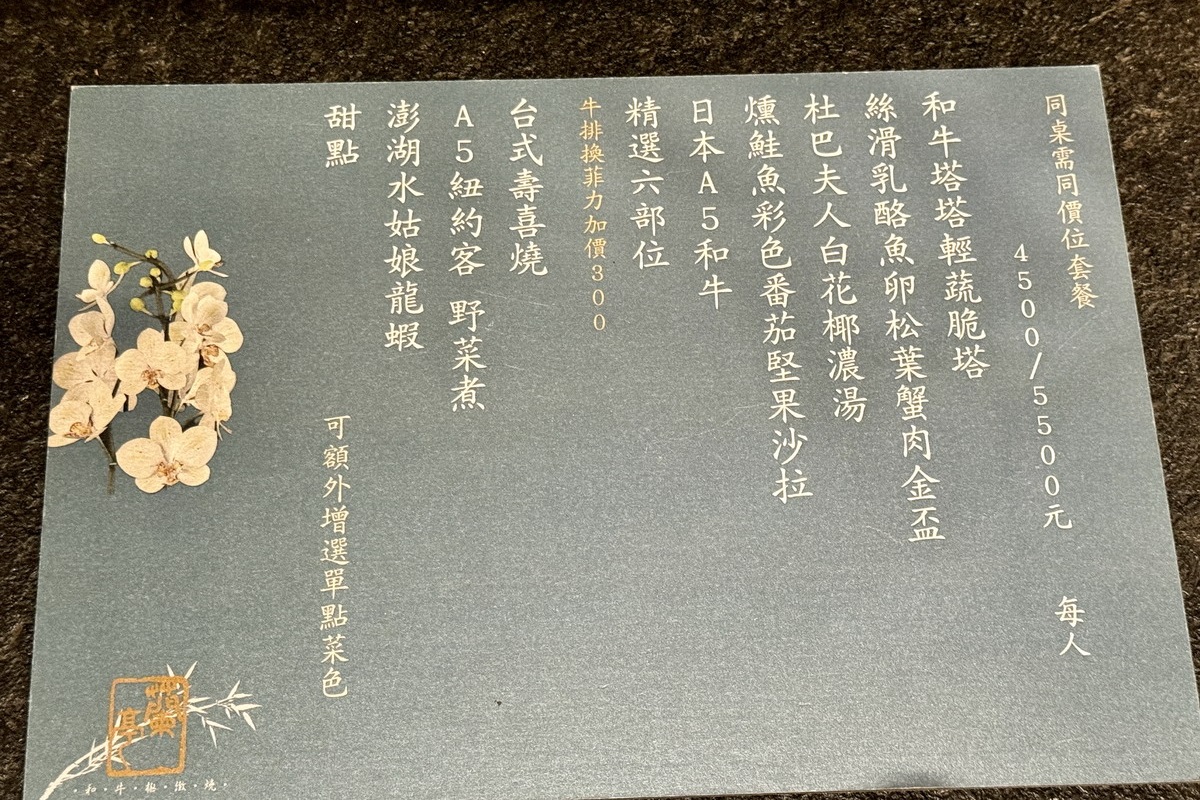 同桌需同價位套餐
4500/5500元 每人
和牛塔塔輕蔬脆塔
絲滑乳酪魚卵松葉蟹肉金盃
杜巴夫人白花椰濃湯
燻鮭魚彩色番茄堅果沙拉
日本A5和牛
精選六部位
牛排換菲力加價300
台式壽喜燒
A5紐約客 野菜煮
澎湖水姑娘龍蝦
甜點
可額外增選單點菜色